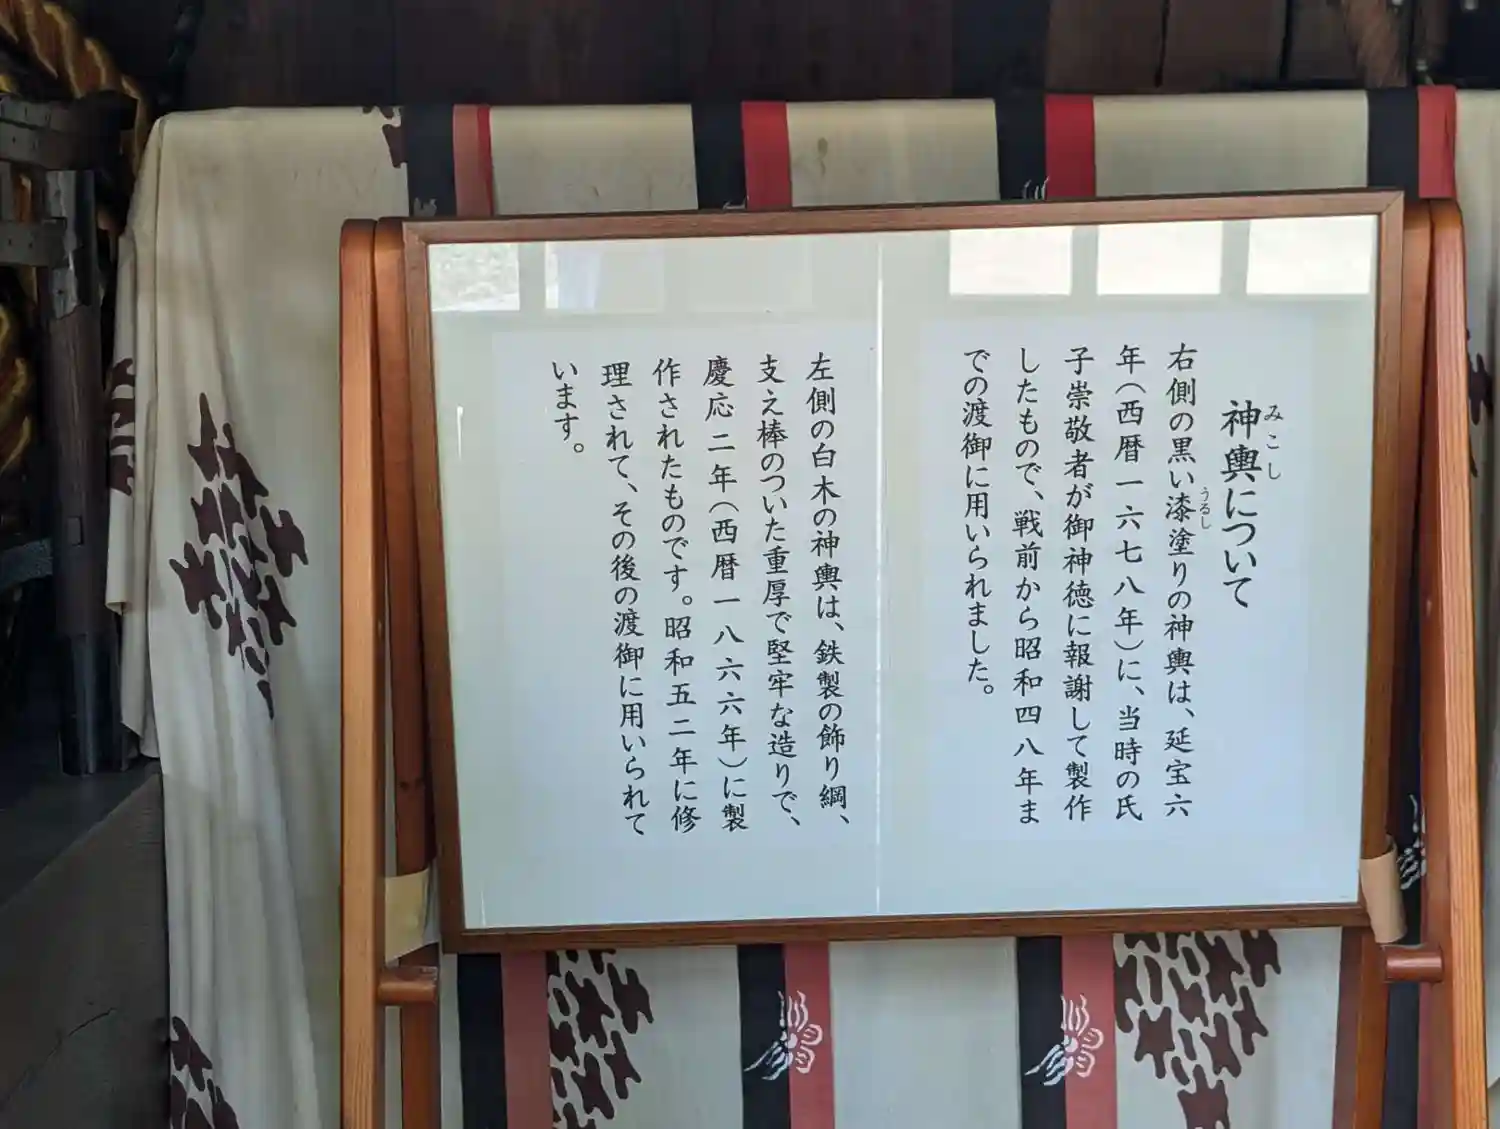 神輿について
みこし
右側の黒い漆塗りの神輿は、延宝六
うるし
年（西暦一六七八年）に、当時の氏
子崇敬者が御神徳に報謝して製作
したもので、戦前から昭和四八年ま
での渡御に用いられました。
左側の白木の神輿は、鉄製の飾り綱、
支え棒のついた重厚で堅牢な造りで、
慶応二年（西暦一八六六年）に製
作されたものです。昭和五二年に修
理されて、その後の渡御に用いられて
います。